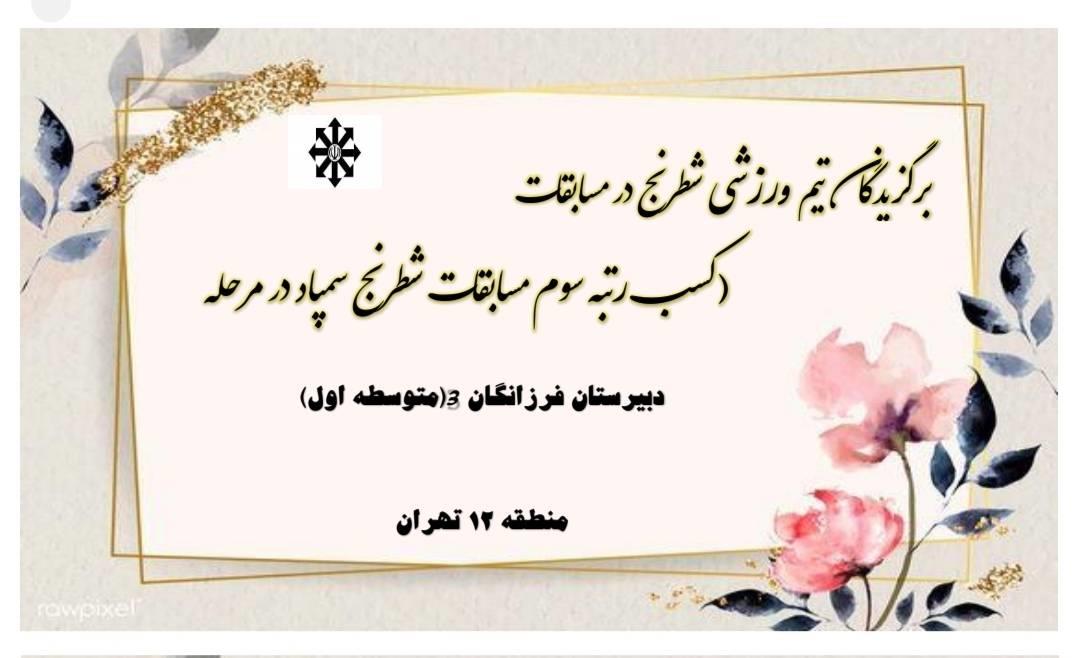 برگزیدگان تیم ورزشی شطرنج در مسابقات
(کسب رتبه سوم مسابقات شطرنج سمپاد در مرحله
دبیرستان فرزانگان 3(متوسطه اول)
منطقه ۱۲ تهران
rawpixel